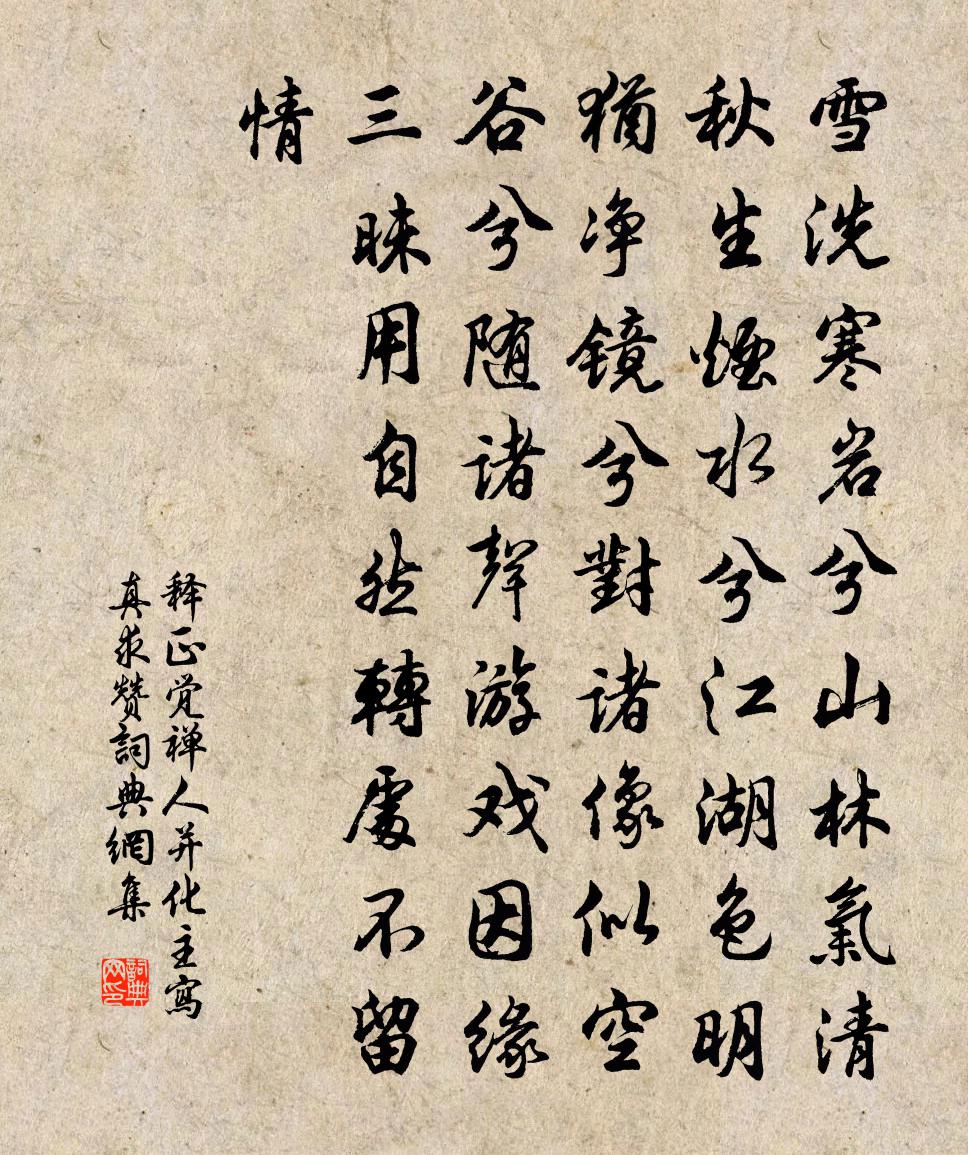 雪洗寒岩兮山林氣清
秋生煙水兮江湖色明
猶净鏡兮對诸像似空
谷兮随诸聲游戏因缘
三昧用自然轉處不留
情
释正觉禅人并化主寫
真求赞詞典網集
詞典网印